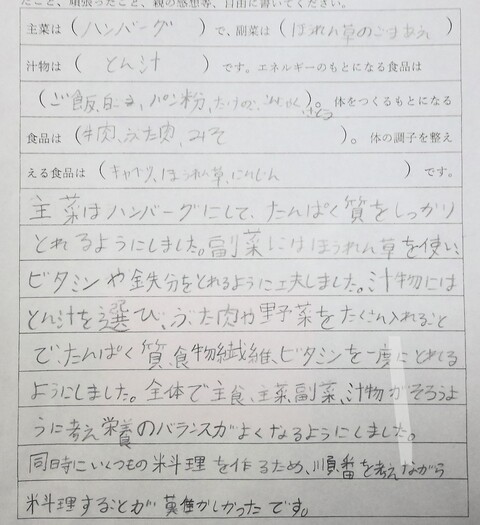 たこと、頑張ったこと、親の感想等、自由に書いてください。
主菜は(ハンバーグ)で、副菜は(ほうれん草のごまあえ)
汁物は(とん汁)です。エネルギーのもとになる食品は
(ご飯、ごま、パン粉、たけのこ、こんにゃく、さとう)。体をつくるもとになる
食品は(牛肉、ぶた肉、みそ)。体の調子を整え
える食品は(キャベツ、ほうれん草、にんじん)です。
主菜はハンバーグにして、たんぱく質をしっかり
とれるようにしました。副菜にはほうれん草を使い、
ビタミンや鉄分をとれるように工夫しました。汁物には
とん汁を選び、ぶた肉や野菜をたくさん入れること
で、たんぱく質、食物繊維、ビタミンを一度にとれる
ようにしました。全体で主食、主菜、副菜、汁物がそろうよ
うに考え栄養のバランスがよくなるようにしました。
同時にいくつもの料理を作るため、順番を考えながら
料理することが難しかったです。